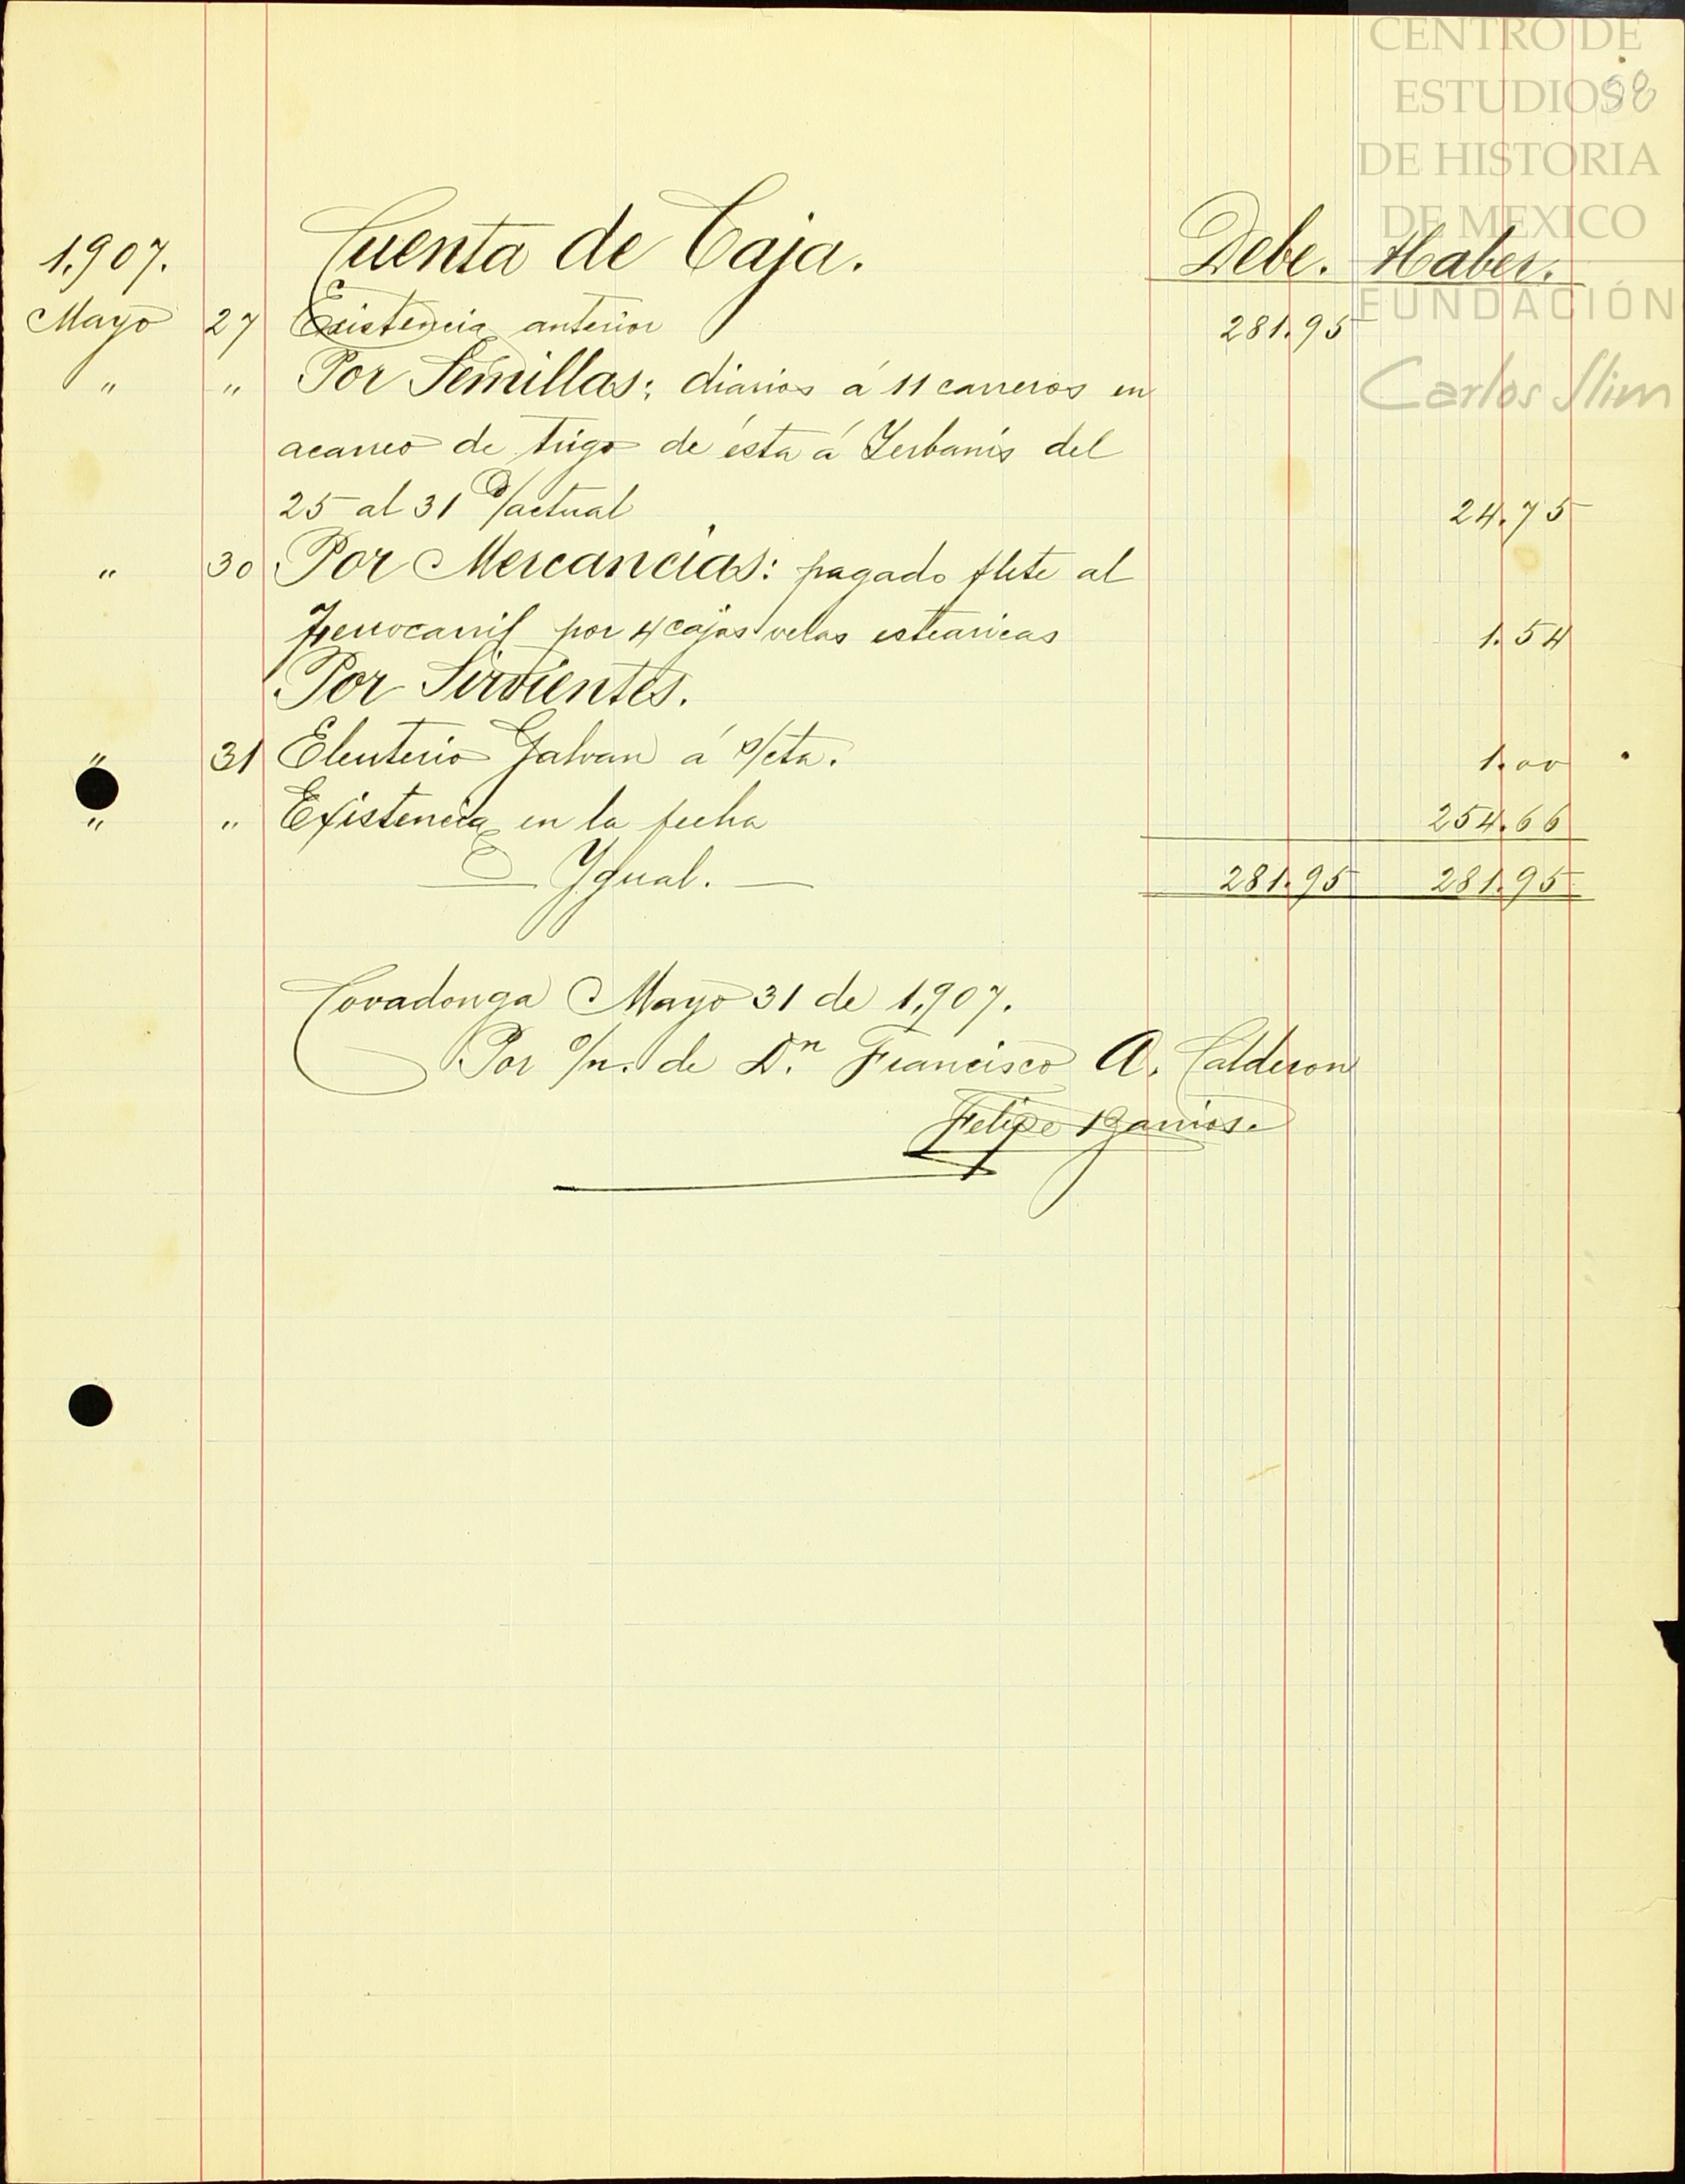 CENTRO DE
ESTUDIOS 58
DE HISTORIA
DE MEXICO
FUNDACIÓN
Carlos Slim
1,907. Cuenta de Caja. Debe. Haber.
Mayo 27 Existencia anterior 281.95
" " Por Semillas: diarios á 11 carreros en
acarreo de trigo de ésta á Yerbanís del
25 al 31 d/actual 24.75
" 30 Por Mercancías: pagado flete al
Ferrocarril por 4 cajas velas estearicas 1.54
Por Sirvientes.
" 31 Eleuterio Galvan á s/cta. 1.00
" " Existencia en la fecha 254.66
Ygual. 281.95 281.95
Covadonga Mayo 31 de 1,907.
Por o/n. de Dn. Francisco A. Calderon
Felipe